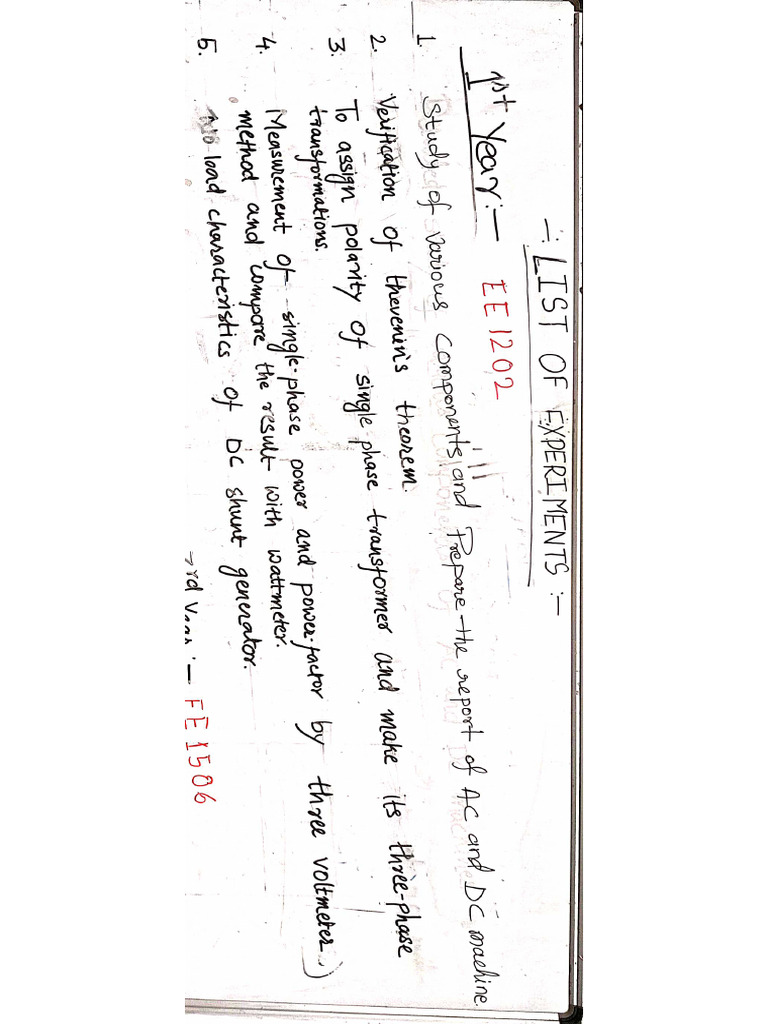 -: LIST OF EXPERIMENTS :-
1st Year :- EE1202
1. Study of various components and Prepare the report of AC and DC machine.
2. Verification of thevenin's theorem.
3. To assign polarity of single phase transformer and make its three-phase
transformations.
4. Measurement of single-phase power and power-factor by three voltmeter
method and compare the result with wattmeter.
5. No load characteristics of DC shunt generator.
rd Year :-